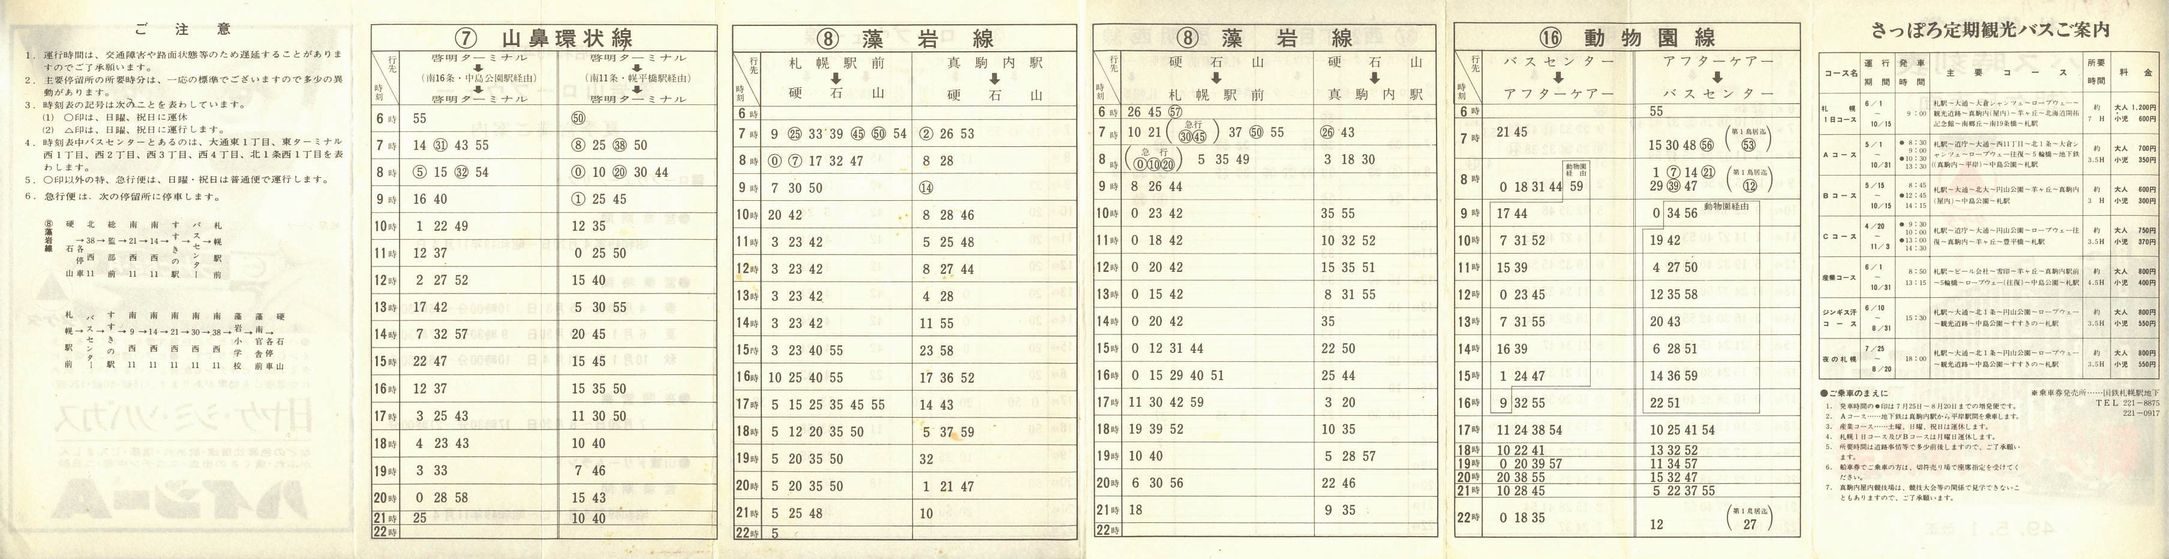 ご注意
1. 運行時間は、交通障害や路面状態等のため遅延することがありま
すのでご了承願います。
2. 主要停留所の所要時分は、一応の標準でございますので多少の異
動があります。
3. 時刻表の記号は次のことを表わしています。
(1) ○印は、日曜、祝日に運休
(2) △印は、日曜、祝日に運行します。
4. 時刻表中バスセンターとあるのは、大通東1丁目、東ターミナル
西1丁目、西2丁目、西3丁目、西4丁目、北1条西1丁目を表
わします。
5. ○印以外の特、急行便は、日曜・祝日は普通便で運行します。
6. 急行便は、次の停留所に停車します。
⑧藻岩線
硬石山→各停→北38西11→総監部前→南21西11→南14西11→すすきの駅→バスセンター→札幌駅前
札幌駅前→バスセンター→すすきの駅→南9西11→南14西11→南21西11→南30西11→南38西11→藻岩小学校→藻南官舎前→各停→硬石山
⑦ 山鼻環状線
行先 時刻
啓明ターミナル (南16条・中島公園駅経由) 啓明ターミナル
啓明ターミナル (南11条・幌平橋駅経由) 啓明ターミナル
6時 55 | ㊿
7時 14 ㉛ 43 55 | ⑧ 25 ㊳ 50
8時 ⑤ 15 ㉜ 54 | ⓪ 10 ⑳ 30 44
9時 16 40 | ① 25 45
10時 1 22 49 | 12 35
11時 12 37 | 0 25 50
12時 2 27 52 | 15 40
13時 17 42 | 5 30 55
14時 7 32 57 | 20 45
15時 22 47 | 15 45
16時 12 37 | 15 35 50
17時 3 25 43 | 11 30 50
18時 4 23 43 | 10 40
19時 3 33 | 7 46
20時 0 28 58 | 15 43
21時 25 | 10 40
22時
⑧ 藻岩線
行先 時刻
札幌駅前 硬石山
真駒内駅 硬石山
6時
7時 9 ㉕ 33 39 ㊺ ㊿ 54 | ② 26 53
8時 ⓪ ⑦ 17 32 47 | 8 28
9時 7 30 50 | ⑭
10時 20 42 | 8 28 46
11時 3 23 42 | 5 25 48
12時 3 23 42 | 8 27 44
13時 3 23 42 | 4 28
14時 3 23 42 | 11 55
15時 3 23 40 55 | 23 58
16時 10 25 40 55 | 17 36 52
17時 5 15 25 35 45 55 | 14 43
18時 5 12 20 35 50 | 5 37 59
19時 5 20 35 50 | 32
20時 5 20 35 50 | 1 21 47
21時 5 25 48 | 10
22時 5
⑧ 藻岩線
行先 時刻
硬石山 札幌駅前
硬石山 真駒内駅
6時 26 45 �57
7時 10 21 (急行 ㉚㊺) 37 ㊿ 55 | ㉖ 43
8時 (急行 ⓪⑩⑳) 5 35 49 | 3 18 30
9時 8 26 44
10時 0 23 42 | 35 55
11時 0 18 42 | 10 32 52
12時 0 20 42 | 15 35 51
13時 0 15 42 | 8 31 55
14時 0 20 42 | 35
15時 0 12 31 44 | 22 50
16時 0 15 29 40 51 | 25 44
17時 11 30 42 59 | 3 20
18時 19 39 52 | 10 35
19時 10 40 | 5 28 57
20時 6 30 56 | 22 46
21時 18 | 9 35
22時
⑯ 動物園線
行先 時刻
バスセンター アフターケアー
アフターケアー バスセンター
6時 | 55
7時 21 45 | 15 30 48 56 (第1鳥居迄 53)
8時 0 18 31 44 動物園経由 59 | 1 ⑦ 14 ㉑ 29 ㊴ 47 (第1鳥居迄 ⑫)
9時 17 44 | 0 34 56 動物園経由
10時 7 31 52 | 19 42
11時 15 39 | 4 27 50
12時 0 23 45 | 12 35 58
13時 7 31 55 | 20 43
14時 16 39 | 6 28 51
15時 1 24 47 | 14 36 59
16時 9 32 55 | 22 51
17時 11 24 38 54 | 10 25 41 54
18時 10 22 41 | 13 32 52
19時 0 20 39 57 | 11 34 57
20時 20 38 55 | 15 32 47
21時 10 28 45 | 5 22 37 55
22時 0 18 35 | 12 (第1鳥居迄 27)
さっぽろ定期観光バスご案内
コース名 運行期間 発車時間 主要コース 所要時間 料金
札幌1日コース 6/1~10/15 9:00 約7H 大人1,200円 小児600円
Aコース 5/1~10/31 ●8:30 9:00 ●10:30 13:30 約3.5H 大人700円 小児350円
Bコース 5/15~10/15 8:45 ●12:45 14:15 札駅~大通~北大~円山公園~羊ヶ丘~真駒内(屋内)~中島公園~札駅 約3H 大人600円 小児300円
Cコース 4/20~11/3 ●9:30 10:00 ●13:00 14:30 札駅~道庁~大通~円山公園~ロープウェー往復~真駒内~羊ヶ丘~豊平橋~札駅 約3.5H 大人750円 小児370円
産業コース 6/1~10/31 8:50 13:15 札駅~ビール会社~雪印~羊ヶ丘~真駒内駅前~5輪橋~ロープウェー(往復)~中島公園~札駅 約4.5H 大人800円 小児400円
ジンギス汗コース 6/10~8/31 15:30 札駅~大通~北1条~円山公園~ロープウェー~観光道路~中島公園~すすきの~札駅 約3.5H 大人800円 小児550円
夜の札幌 7/25~8/20 18:00 札駅~大通~北1条~円山公園~ロープウェー~観光道路~中島公園~すすきの~札駅 約3.5H 大人800円 小児550円
●ご乗車のまえに
※乗車券発売所……国鉄札幌駅地下
TEL 221-8875
221-0917
1. 発車時間の●印は7月25日~8月20日までの増発便です。
2. Aコース……地下鉄は真駒内駅から平岸駅間を乗車します。
3. 産業コース……土曜、日曜、祝日は運休します。
4. 札幌1日コース及びBコースは月曜日運休します。
5. 所要時間は道路事情等で多少前後しますので、ご了承願い
ます。
6. 船車券でご乗車の方は、切符売り場で座席指定を受けてく
ださい。
7. 真駒内屋内競技場は、競技大会等の関係で見学できないこ
ともありますので、ご了承願います。